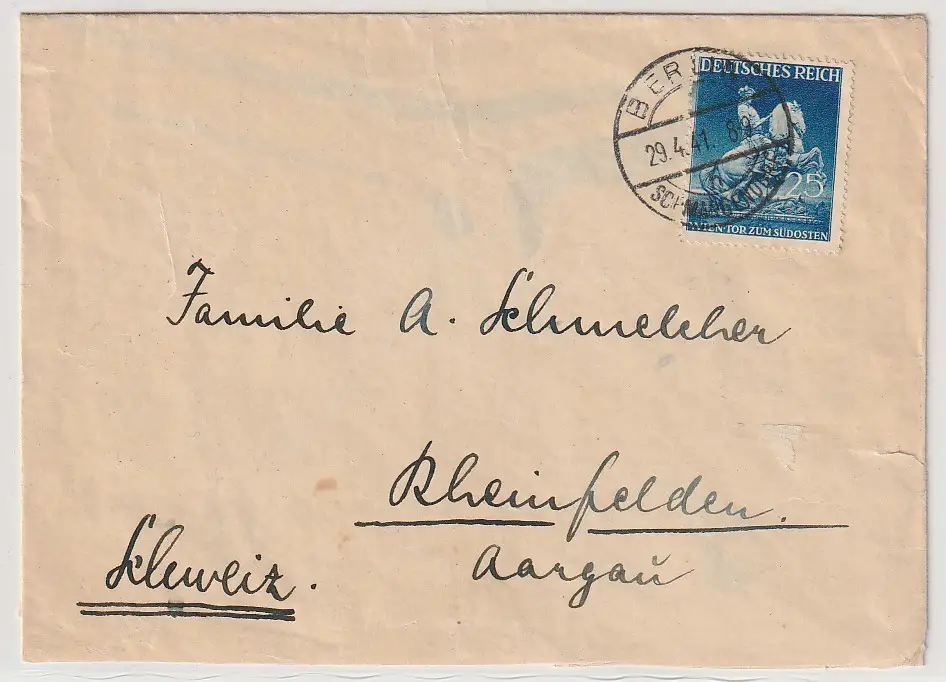 BERLIN
29.4.41. 8-9
SCHMARGENDORF
DEUTSCHES REICH
25
WIEN-TOR ZUM SÜDOSTEN
Familie A. Schmelcher
Rheinfelden.
Aargau
Schweiz.